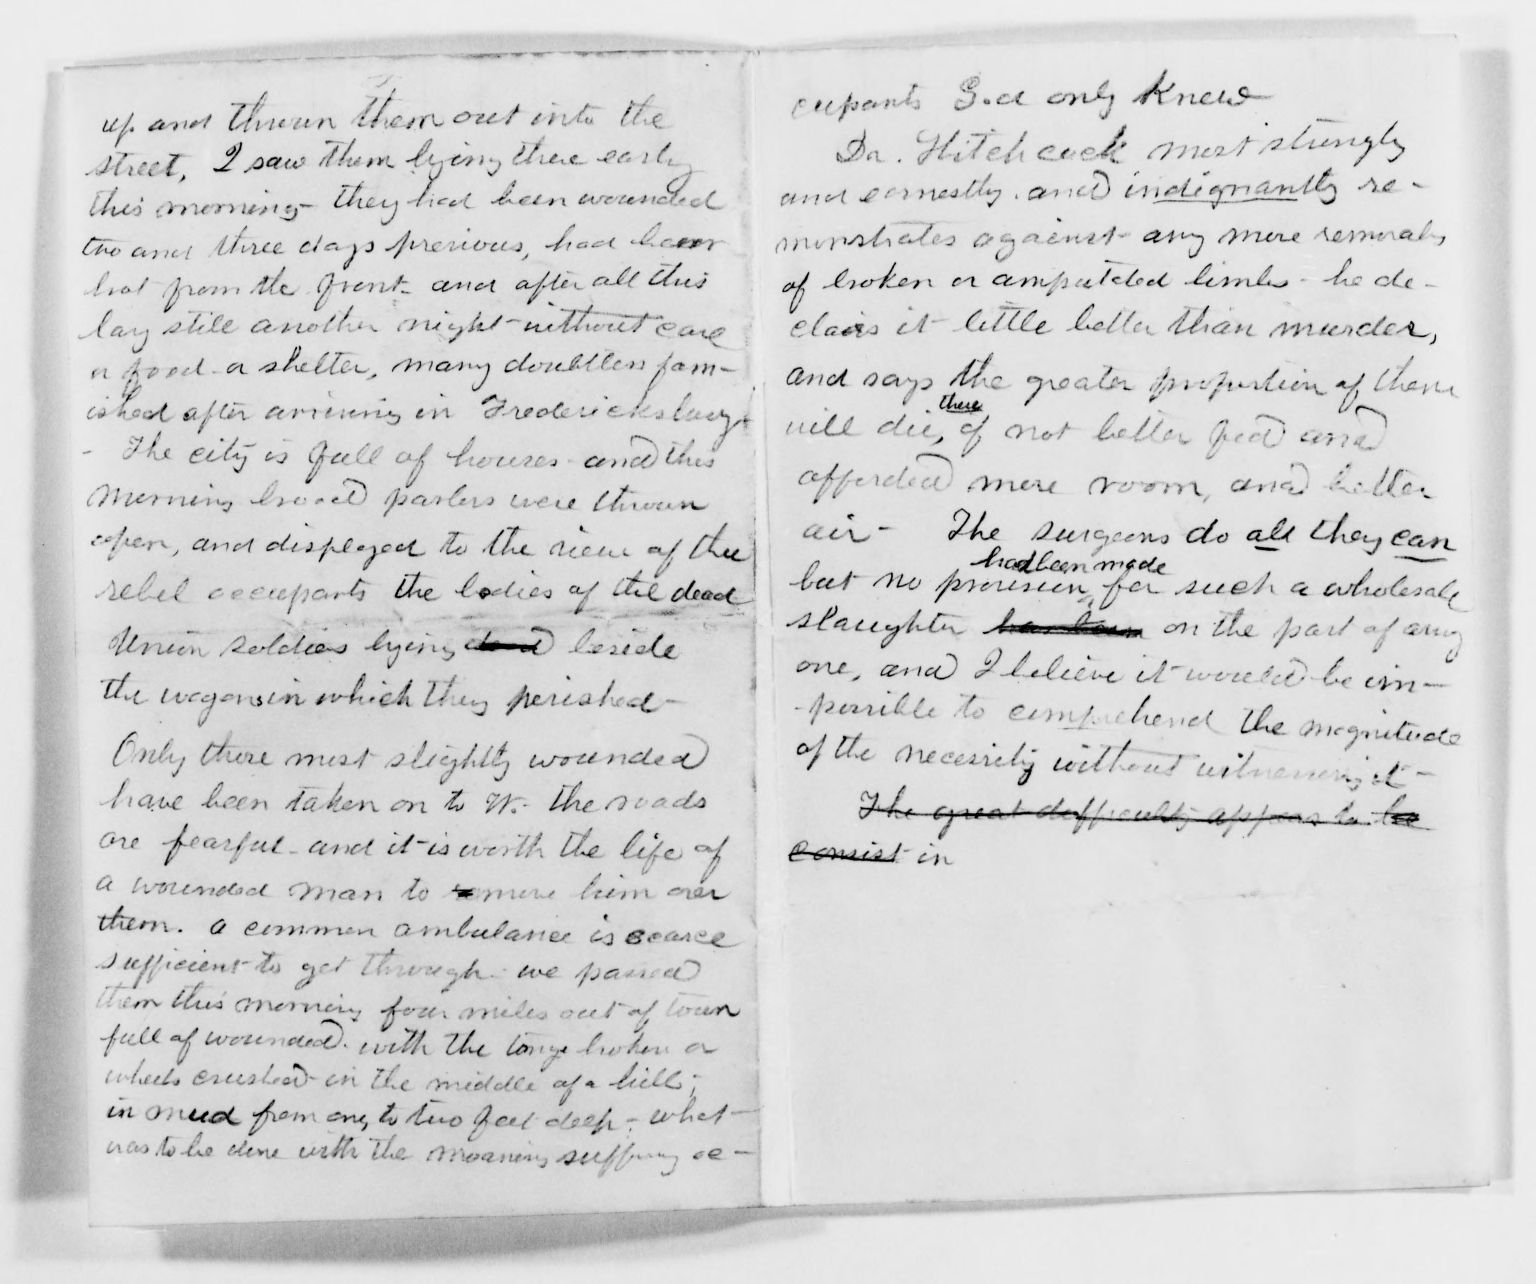 up and thrown them out into the
street, I saw them lying there early
this morning – they had been wounded
two and three days previous, had been
brot from the front – and after all this
lay still another night – without care
or food – or shelter, many doubtless fam-
ished after arriving in Fredericksburg
– The city is full of houses – and this
morning broad parlors were thrown
open, and displayed to the view of the
rebel occupants the bodies of the dead
Union soldiers lying dead beside
the wagons in which they perished –
Only those most slightly wounded
have been taken on to W. – the roads
are fearful – and it is worth the life of
a wounded man to move him over
them. a common ambulance is scarce
sufficient to get through – we passed
them this morning four miles out of town
full of wounded. with the tonge broken or
wheels crushed – in the middle of a hill;
in mud from one, to two feet deep –; what –
was to be done with the moaning suffering oc –
cupants God only knew
Dr. Hitchcock most strongly
and earnestly. and indignantly re –
monstrates against – any more removals
of broken or amputated limbs – he de –
clairs it little better than murder,
and says the greater proportion of them
there
will die, if not better fed and
afforded more room, and better
air – The surgeons do all they can
had been made
but no provision ^ for such a wholesale
slaughter has been on the part of any
one, and I believe it would be im –
– possible to comprehend the magnitude
of the necessity without witnessing it –
The great difficulty appears to be
consist in